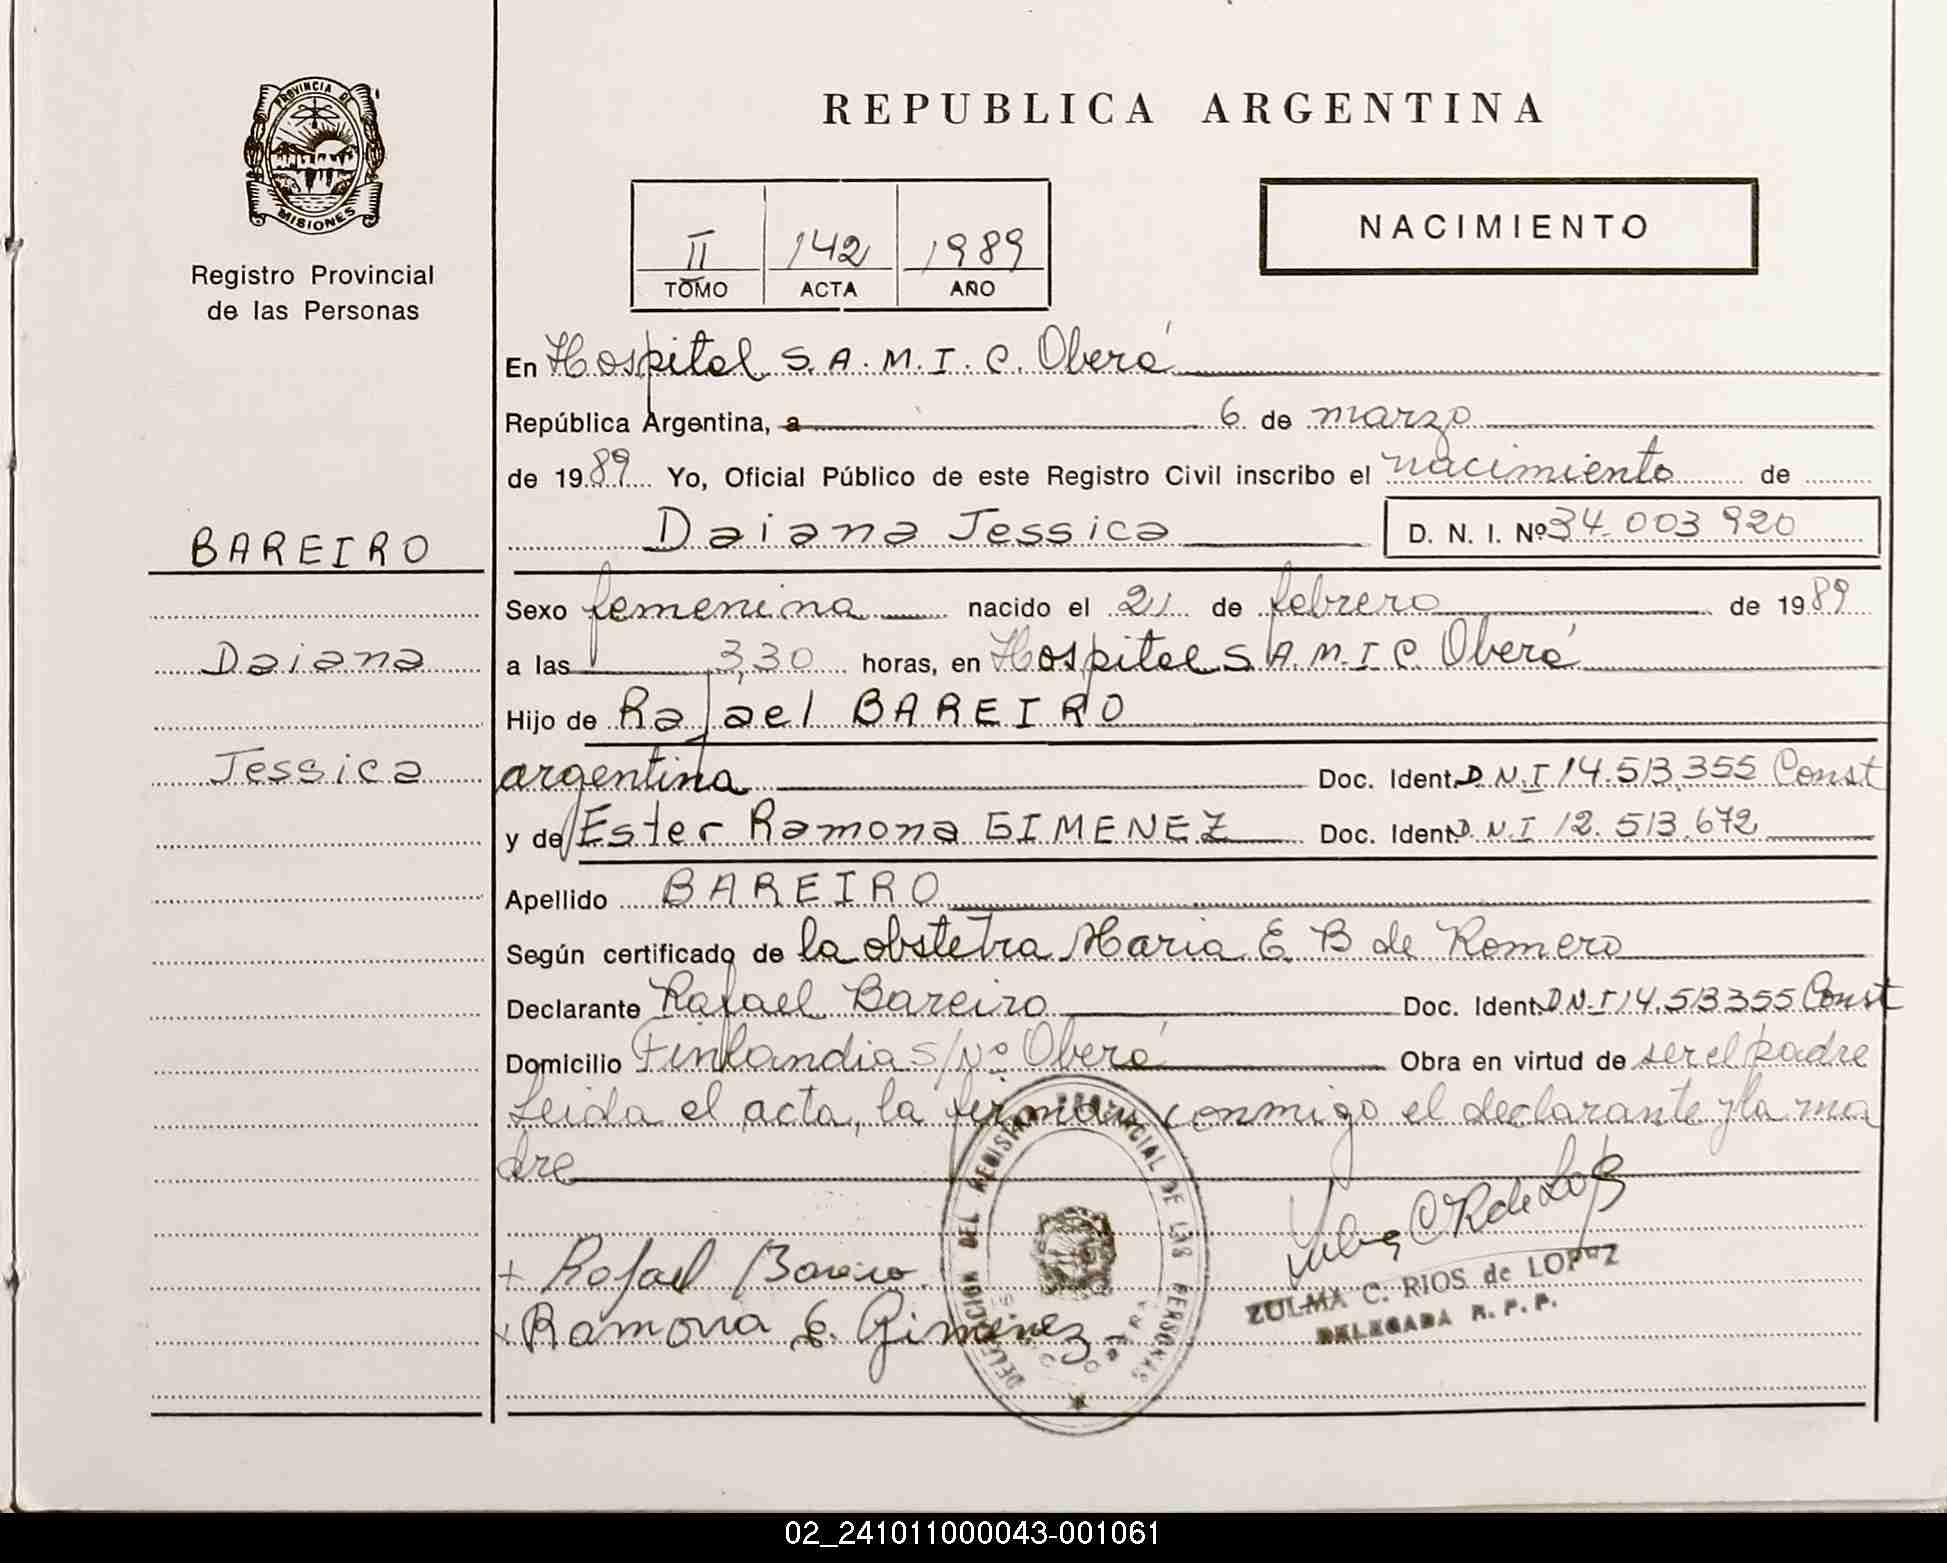 PROVINCIA DE
MISIONES
Registro Provincial
de las Personas
BAREIRO
Daiana
Jessica
REPUBLICA ARGENTINA
II 142 1989
TOMO ACTA AÑO
NACIMIENTO
En Hospital S.A.M.I.C. Oberá
República Argentina, a 6 de marzo
de 1989 Yo, Oficial Público de este Registro Civil inscribo el nacimiento de
Daiana Jessica D. N. I. Nº 34.003.920
Sexo femenina nacido el 21 de febrero de 1989
a las 3,30 horas, en Hospital S.A.M.I.C. Oberá
Hijo de Rafael BAREIRO
argentina Doc. Ident. D.N.I 14.513.355 Const
y de Ester Ramona GIMENEZ Doc. Ident. D.N.I 12.513.672
Apellido BAREIRO
Según certificado de la obstetra Maria E. B de Romero
Declarante Rafael Bareiro Doc. Ident. D.N.I 14.513355 Const
Domicilio Finlandia S/Nº Oberá Obra en virtud de ser el padre
Leida el acta, la firman conmigo el declarante y la ma
dre
+ Rafael Bareiro.
Ramona E. Gimenez
DELEGACION DEL REGISTRO PROVINCIAL DE LAS PERSONAS
Zulma C R de Lopez
ZULMA C. RIOS de LOPEZ
DELEGADA R. P. P.
02_241011000043-001061